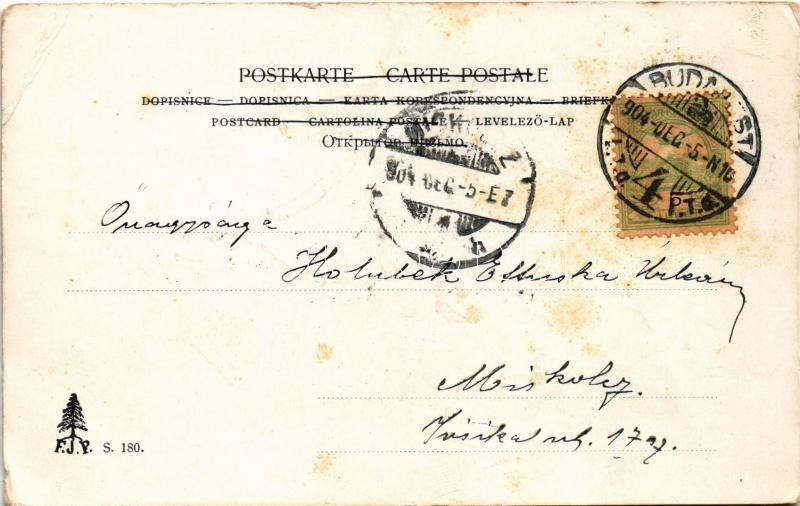 POSTKARTE — CARTE POSTALE
DOPISNICE — DOPISNICA — KARTA KORESPONDENCYJNA — BRIEFK
POSTCARD — CARTOLINA POSTALE — LEVELEZŐ-LAP
Открытое письмо.
BUDAPEST
904 DEC -5-N10
4
P.T.
904 DEC -5-E7
Önagysága
Holubek Etuska Úrleány
Miskolcz.
Jósika u. 17 sz.
F.J.P. S. 180.